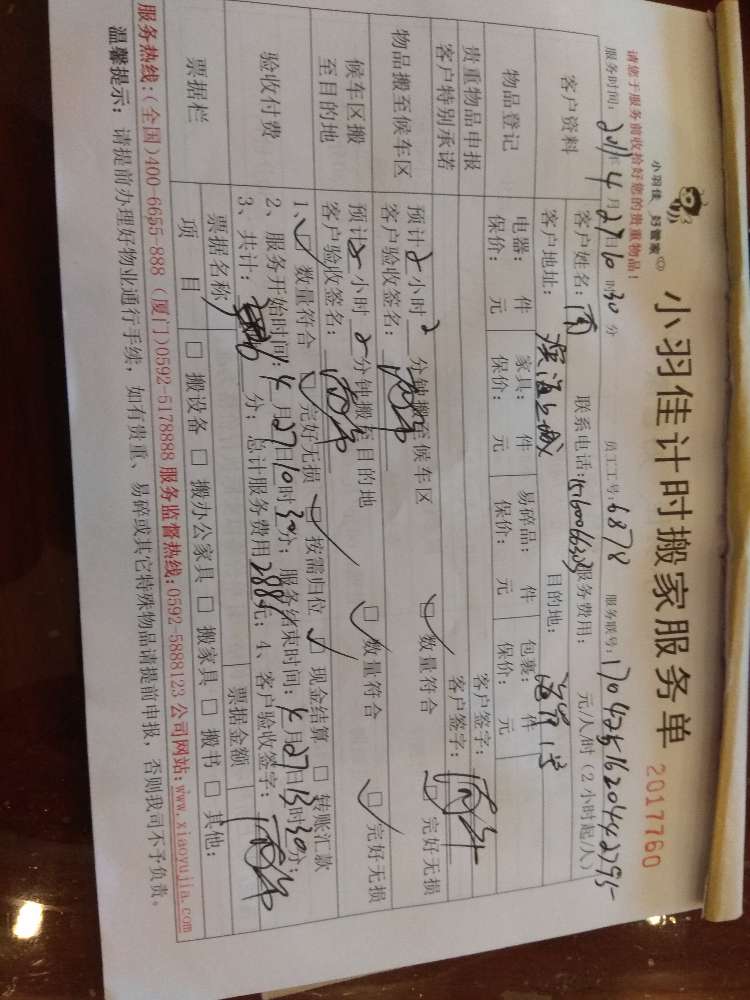 小羽佳 好管家
小羽佳计时搬家服务单 2017760
请您于服务前收拾好您的贵重物品!
服务时间: 2017年4月27日10时30分 员工工号: 6878 服务联号:
客户资料 客户姓名: 联系电话: 服务费用: 元/人/时(2小时起/人)
客户地址: 滨海上城 目的地:
物品登记 电器: 件 家具: 件 易碎品: 件 包裹: 件
保价: 元 保价: 元 保价: 元 保价: 元
贵重物品申报 客户签字:
客户特别承诺 客户签字:
物品搬至候车区 预计2小时2分钟搬至候车区 ☑ 数量符合 ☑ 完好无损
客户验收签名:
候车区搬至目的地 预计2小时2分钟搬至目的地 ☑ 数量符合 ☑ 完好无损
客户验收签名:
验收付费 1、☑ 数量符合 ☑ 完好无损 ☑ 按需归位 ☑ 现金结算 □ 转账汇款
2、服务开始时间: 4月27日10时30分; 服务结束时间: 4月27日13时30分;
3、共计: 分; 总计服务费用288元; 4、客户验收签字:
票据栏 票据名称 票据金额
项 目 □ 搬设备 □ 搬办公家具 □ 搬家具 □ 搬书 □ 其他:
服务热线:(全国)400-6655-888 (厦门)0592-5178888 服务监督热线:0592-5888123 公司网站:www.xiaoyujia.com
温馨提示: 请提前办理好物业通行手续, 如有贵重、易碎或其它特殊物品请提前申报, 否则我司不予负责。